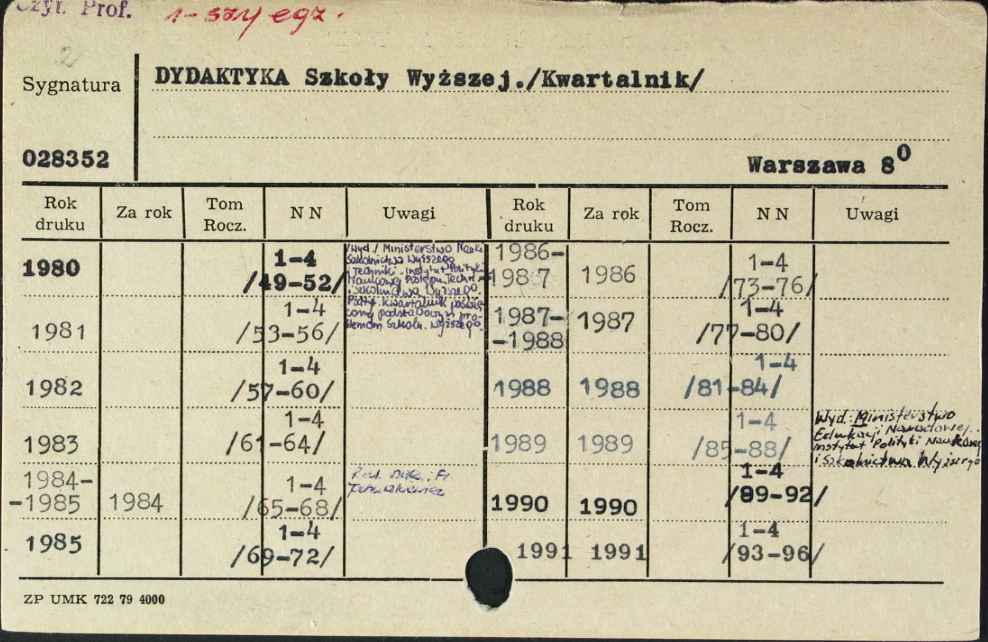 Czyt. Prof. 1-szy egz.
2
Sygnatura
DYDAKTYKA Szkoły Wyższej./Kwartalnik/
028352
Warszawa 8⁰
Rok druku Za rok Tom Rocz. N N Uwagi Rok druku Za rok Tom Rocz. N N Uwagi
1980 1-4 /49-52/
/Wyd./ Ministerstwo Nauki
Szkolnictwa Wyższego
Techniki. Instytut Polityki
Naukowej Postępu Techn.
Szkolnictwa Wyższego.
kwartalnik poświę-
cony podstawowym pro-
blemom Szkoln. Wyższego.
1986-
-1987 1986 1-4 /73-76/
1981 1-4 /53-56/
1987-
-1988 1987 1-4 /77-80/
1982 1-4 /57-60/
1988 1988 1-4 /81-84/
1983 1-4 /61-64/
1989 1989 1-4 /85-88/
Wyd.: Ministerstwo
Edukacji Narodowej.
Instytut Polityki Naukowej
i Szkolnictwa Wyższego
1984-
-1985 1984 1-4 /65-68/
1990 1990 1-4 /89-92/
1985 1-4 /69-72/
1991 1991 1-4 /93-96/
ZP UMK 722 79 4000